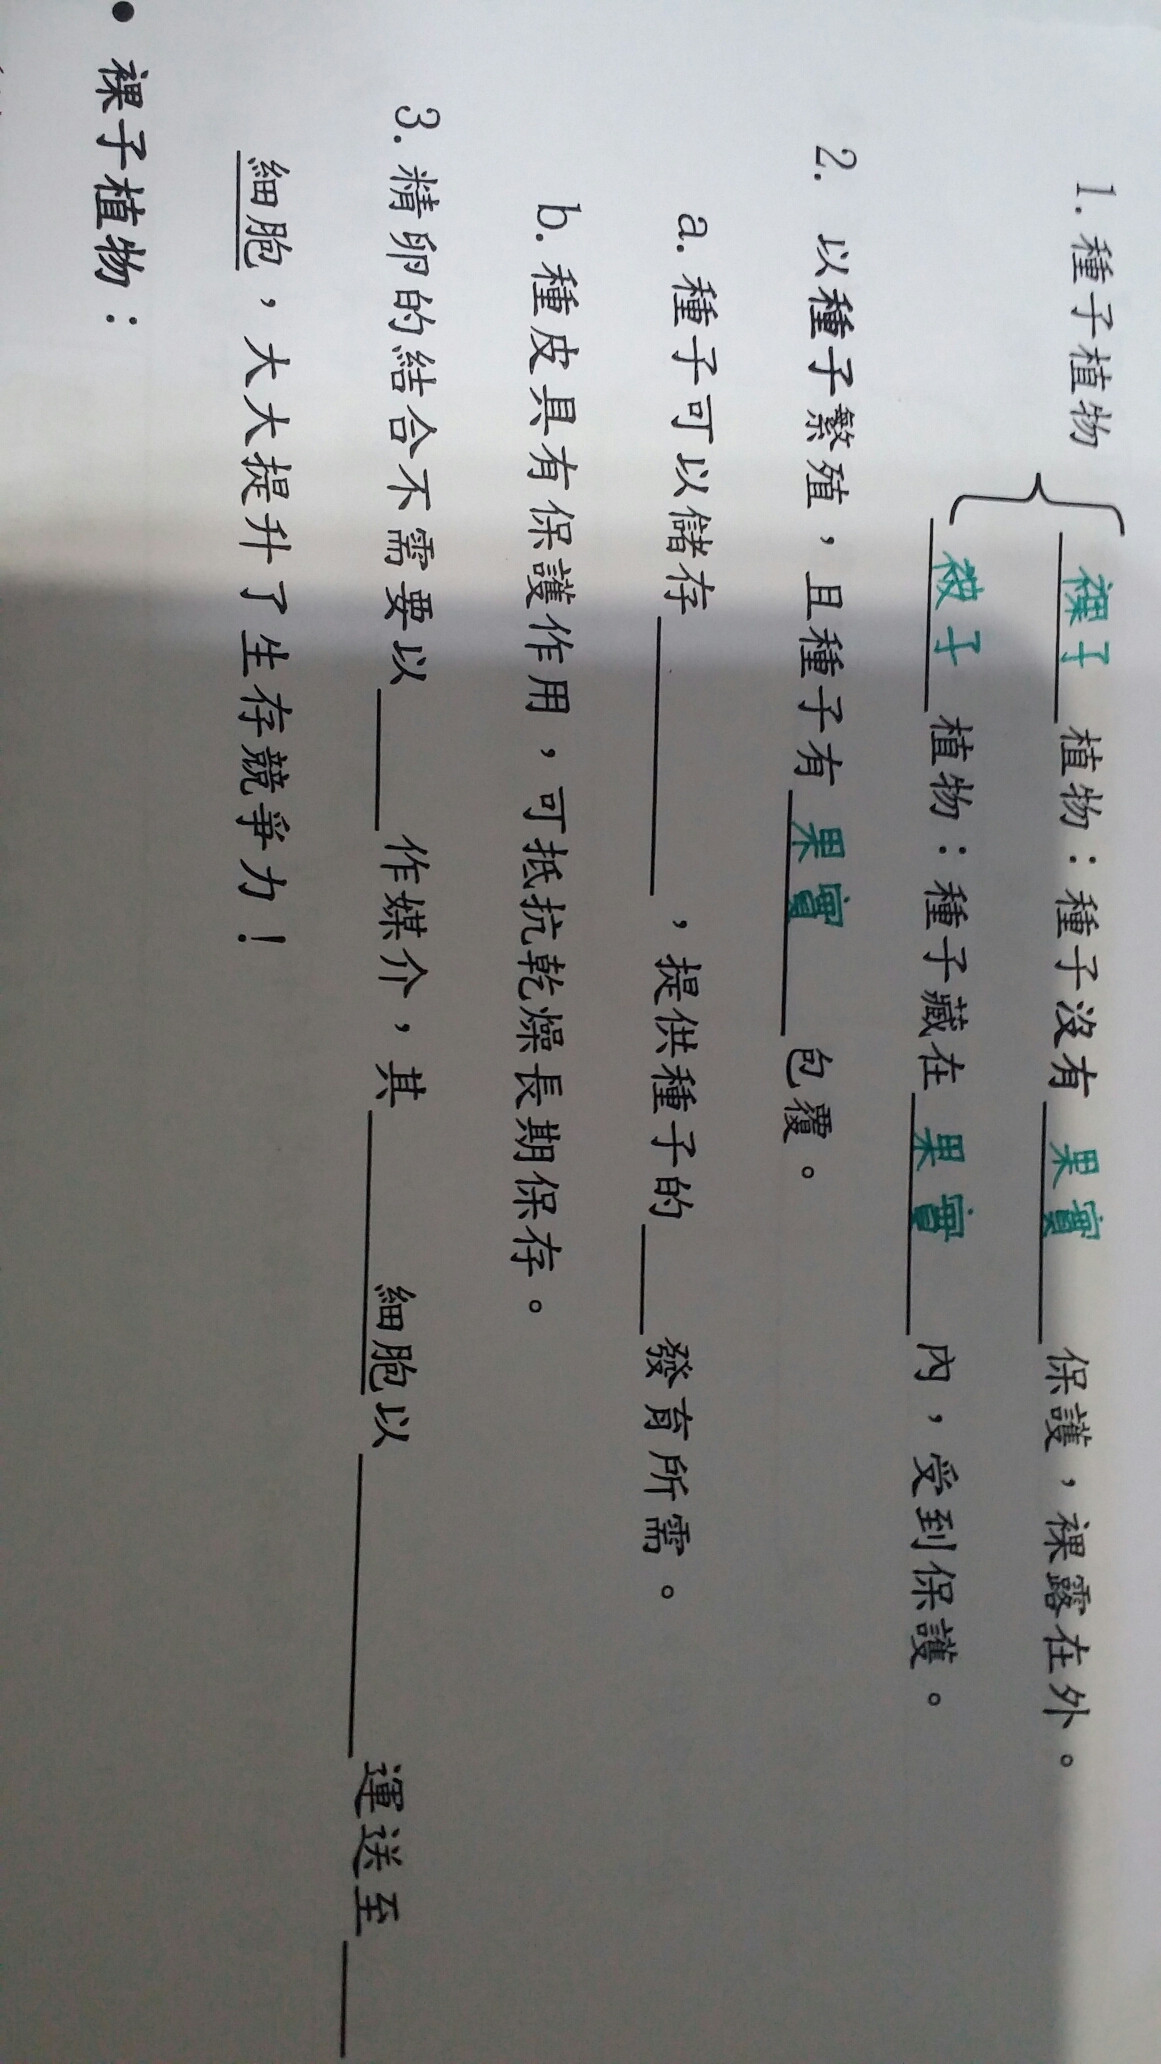 1. 種子植物 裸子 植物：種子沒有 果實 保護，裸露在外。
被子 植物：種子藏在 果實 內，受到保護。
2. 以種子繁殖，且種子有 果實 包覆。
a. 種子可以儲存________，提供種子的____發育所需。
b. 種皮具有保護作用，可抵抗乾燥長期保存。
3. 精卵的結合不需要以____作媒介，其______細胞以________運送至____
細胞，大大提升了生存競爭力！
• 裸子植物：